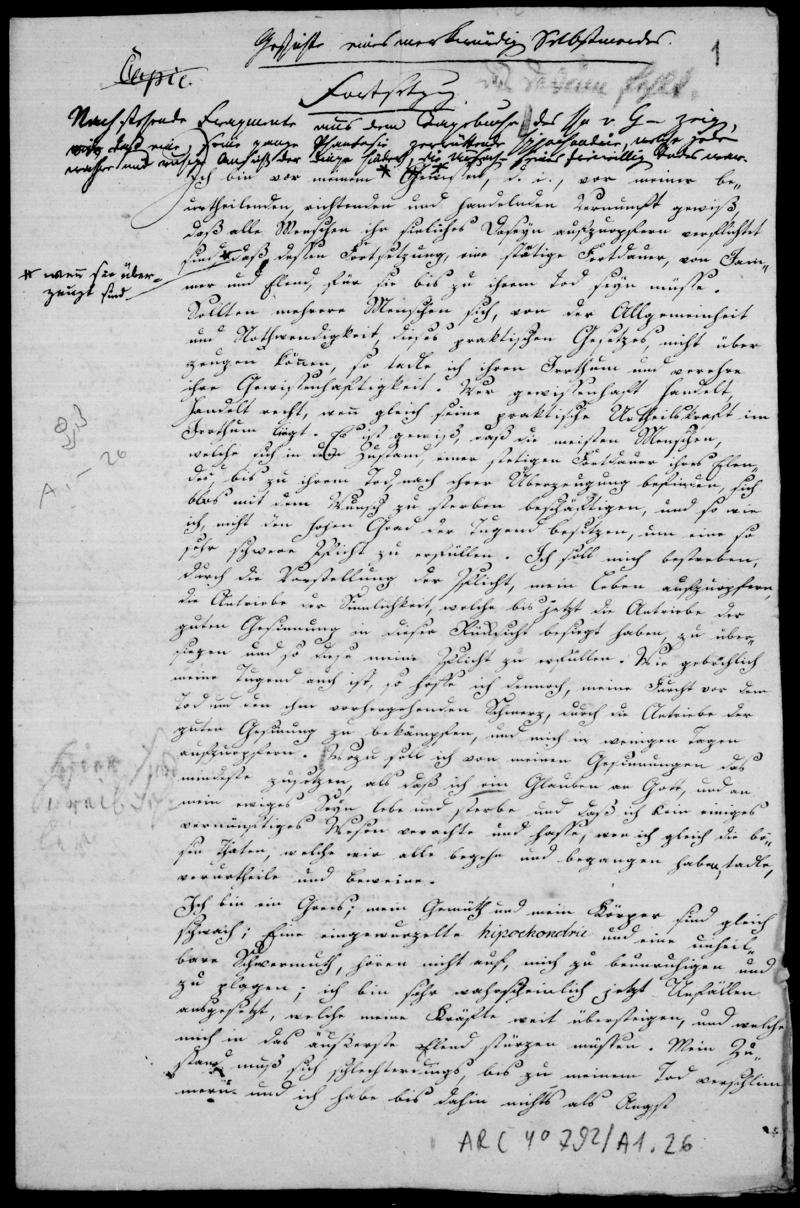 Geschichte eines merkwürdig. Selbstmordes.
1
Copie.
Fortsetzung.
Nachstehende Fragmente aus dem Tagebuche des H. v G– zeigen,
daß eine seine ganze Phantasie zerrüttende Hypochondrie, welche jede
wahre und ruhige Ansicht der Dinge hindert, die Ursache seines freiwillig. Todes war.
Ich bin vor meinem Gewissen, d. i., vor meiner be-
urtheilenden, richtenden und handelnden Vernunft gewiß,
daß alle Menschen ihr sinliches Daseyn aufzuopfern verpflichtet
sind * daß dessen Fortsetzung, eine stätige Fortdauer, von Jam-
mer und Elend, für sie bis zu ihrem Tod seyn müsse.
* wenn sie über-
zeugt sind
Sollten mehrere Menschen sich, von der Allgemeinheit
und Nothwendigkeit, dieses praktischen Gesetzes, nicht über
zeugen können, so tadle ich ihren Irrthum und verehre
ihre Gewissenhaftigkeit. Wer gewissenhaft handelt,
handelt recht, wenn gleich seine praktische Urtheilskraft im
Irrthum liegt. Es ist gewiß, daß die meisten Menschen,
welche sich in dem Zustand, einer stetigen Fortdauer ihres Elen-
des, bis zu ihrem Tod, nach ihrer Überzeugung befinden, sich
blos mit dem Wunsch zu sterben beschäftigen, und so wie
ich, nicht den hohen Grad der Tugend besitzen, um eine so
sehr schwere Pflicht zu erfüllen. Ich soll mich bestreben,
durch die Vorstellung der Pflicht, mein Leben aufzuopfern,
die Antriebe der Sinnlichkeit, welche bis jetzt die Antriebe der
guten Gesinnung in dieser Rücksicht besiegt haben, zu über-
siegen und so diese meine Pflicht zu erfüllen. Wie gebrechlich
meine Tugend auch ist, so hoffe ich dennoch, meine Furcht vor dem
Tod und den ihm vorhergehenden Schmerz, durch die Antriebe der
guten Gesinnung zu bekämpfen, und mich in wenigen Tagen
aufzuopfern. Wozu soll ich von meinen Gesinnungen das
mindeste zusetzen, als daß ich im Glauben an Gott, und an
mein ewiges Seyn lebe und sterbe und daß ich kein einiges
vernünftiges Wesen verachte und hasse, wenn ich gleich die bö-
sen Thaten, welche wir alle begehn und begangen haben, tadle,
verurtheile und beweine.
Ich bin ein Greis; mein Gemüth und mein Körper sind gleich
schwach; Eine eingewurzelte hipochondrie und eine unheil-
bare Schwermuth, hören nicht auf, mich zu beunruhigen und
zu plagen; ich bin sehr wahrscheinlich jetzt Unfällen
ausgesetzt, welche meine Kräfte weit übersteigen, und welche
mich in das äußerste Elend stürzen müssen. Mein Zu-
stand muß sich schlechterdings, bis zu meinem Tod verschlim
mern und ich habe bis dahin nichts als Angst
A 1 – 26
ARC 4° 792/A1.26